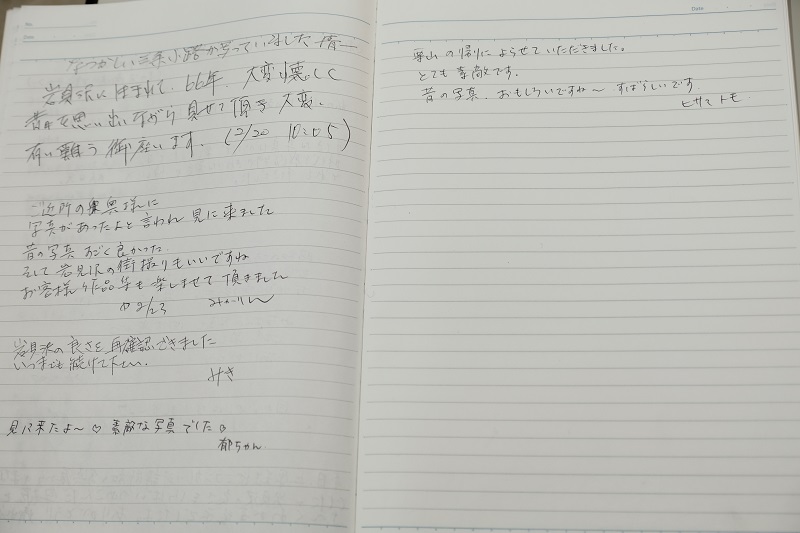 No.
Date
なつかしい三条小路が写っていました
岩見沢に生まれて、66年、大変懐しく
昔を思い出しながら見せて頂き大変、
有り難う御座います。(2/20 10:05)
ご近所の奥様に
写真があったよと言われ見に来ました
昔の写真すごく良かった
そして岩見沢の街撮りもいいですね
お客様作品集も楽しませて頂きました
2/23 みゃーりん
岩見沢の良さを再確認できました
いつまでも続けて下さい。
みき
見に来たよ〜♡素敵な写真でした。
郁ちゃん
Date
栗山の帰りによらせていただきました。
とても素敵です。
昔の写真、おもしろいですね〜 すばらしいです
ヒサミトモ